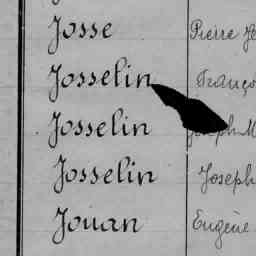 Josse Pierre
Josselin Franço
Josselin Joseph M
Josselin Joseph
Jouan Eugène